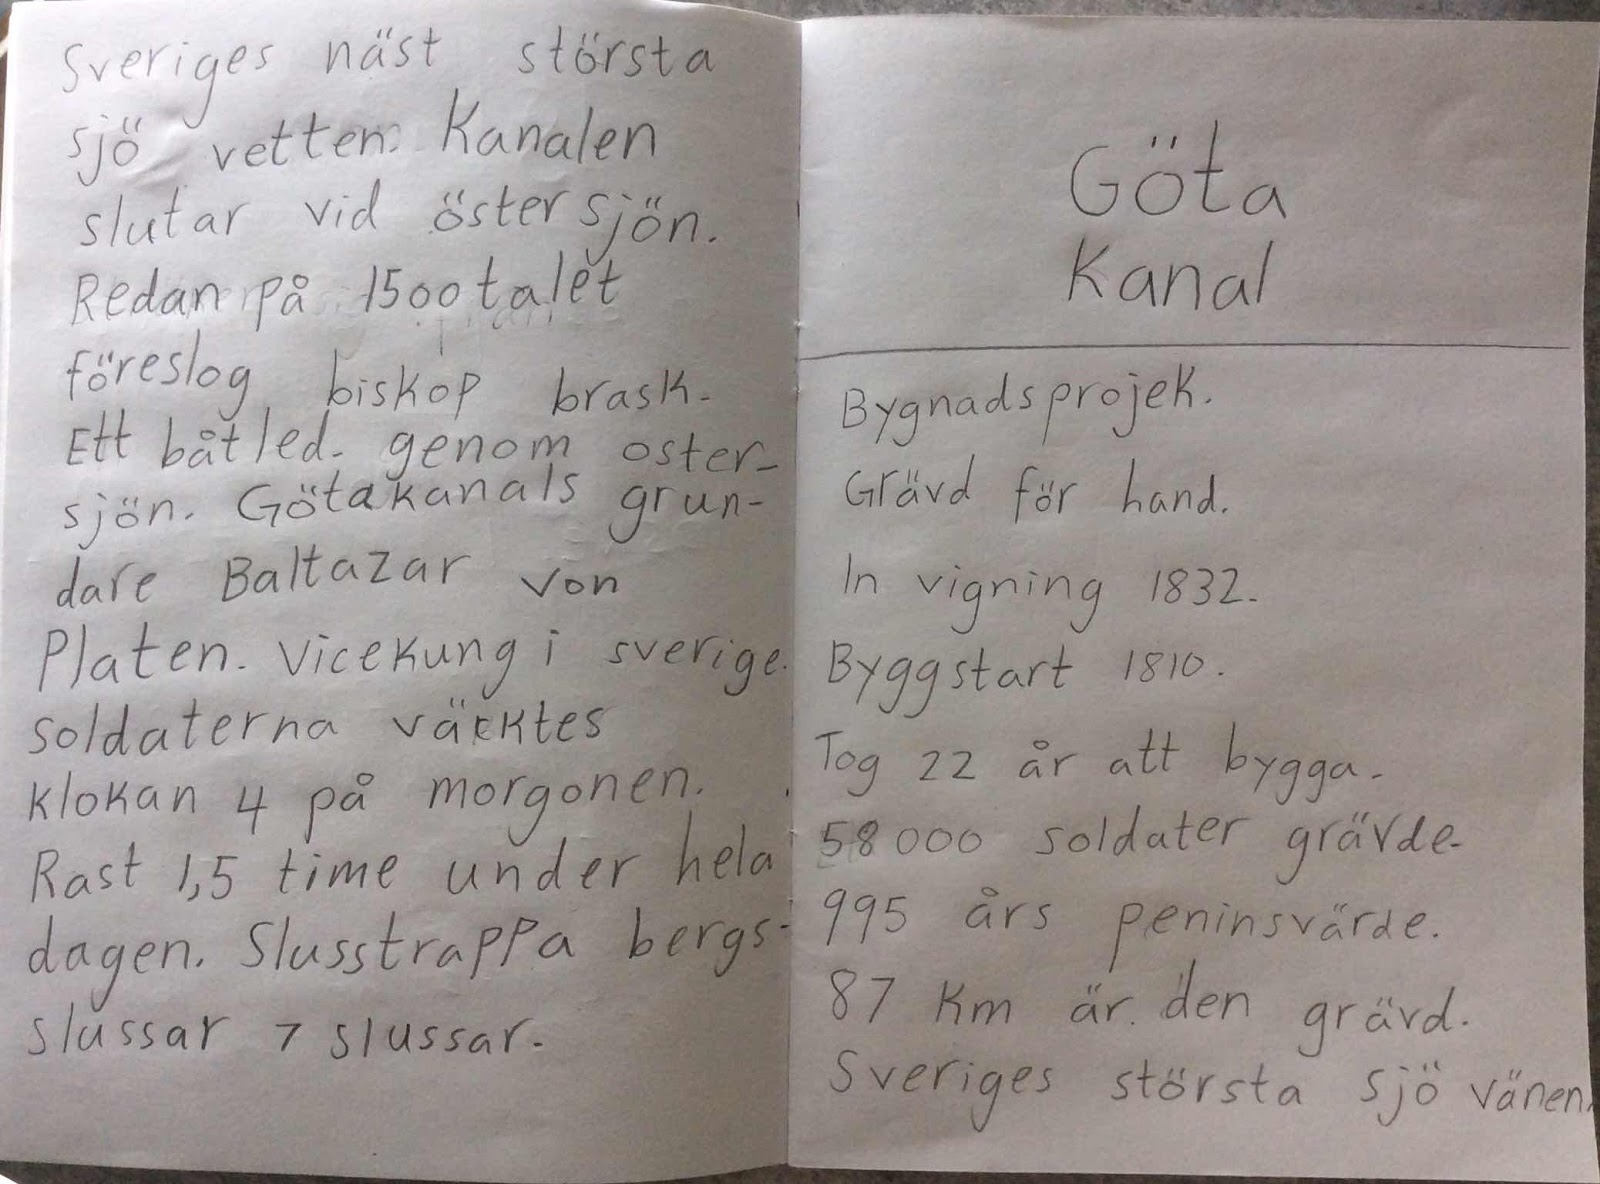 Sveriges näst största
sjö vettem. Kanalen
slutar vid östersjön.
Redan på 1500talet
föreslog biskop brask.
Ett båtled. genom oster-
sjön. Götakanals grun-
dare Baltazar von
Platen. Vicekung i sverige.
soldaterna väcktes
klokan 4 på morgonen.
Rast 1,5 time under hela
dagen. Slusstrappa bergs-
slussar 7 slussar.
Göta
Kanal
Bygnadsprojek.
Grävd för hand.
In vigning 1832.
Byggstart 1810.
Tog 22 år att bygga.
58000 soldater grävde.
995 års peninsvärde.
87 km är den grävd.
Sveriges största sjö vänen.